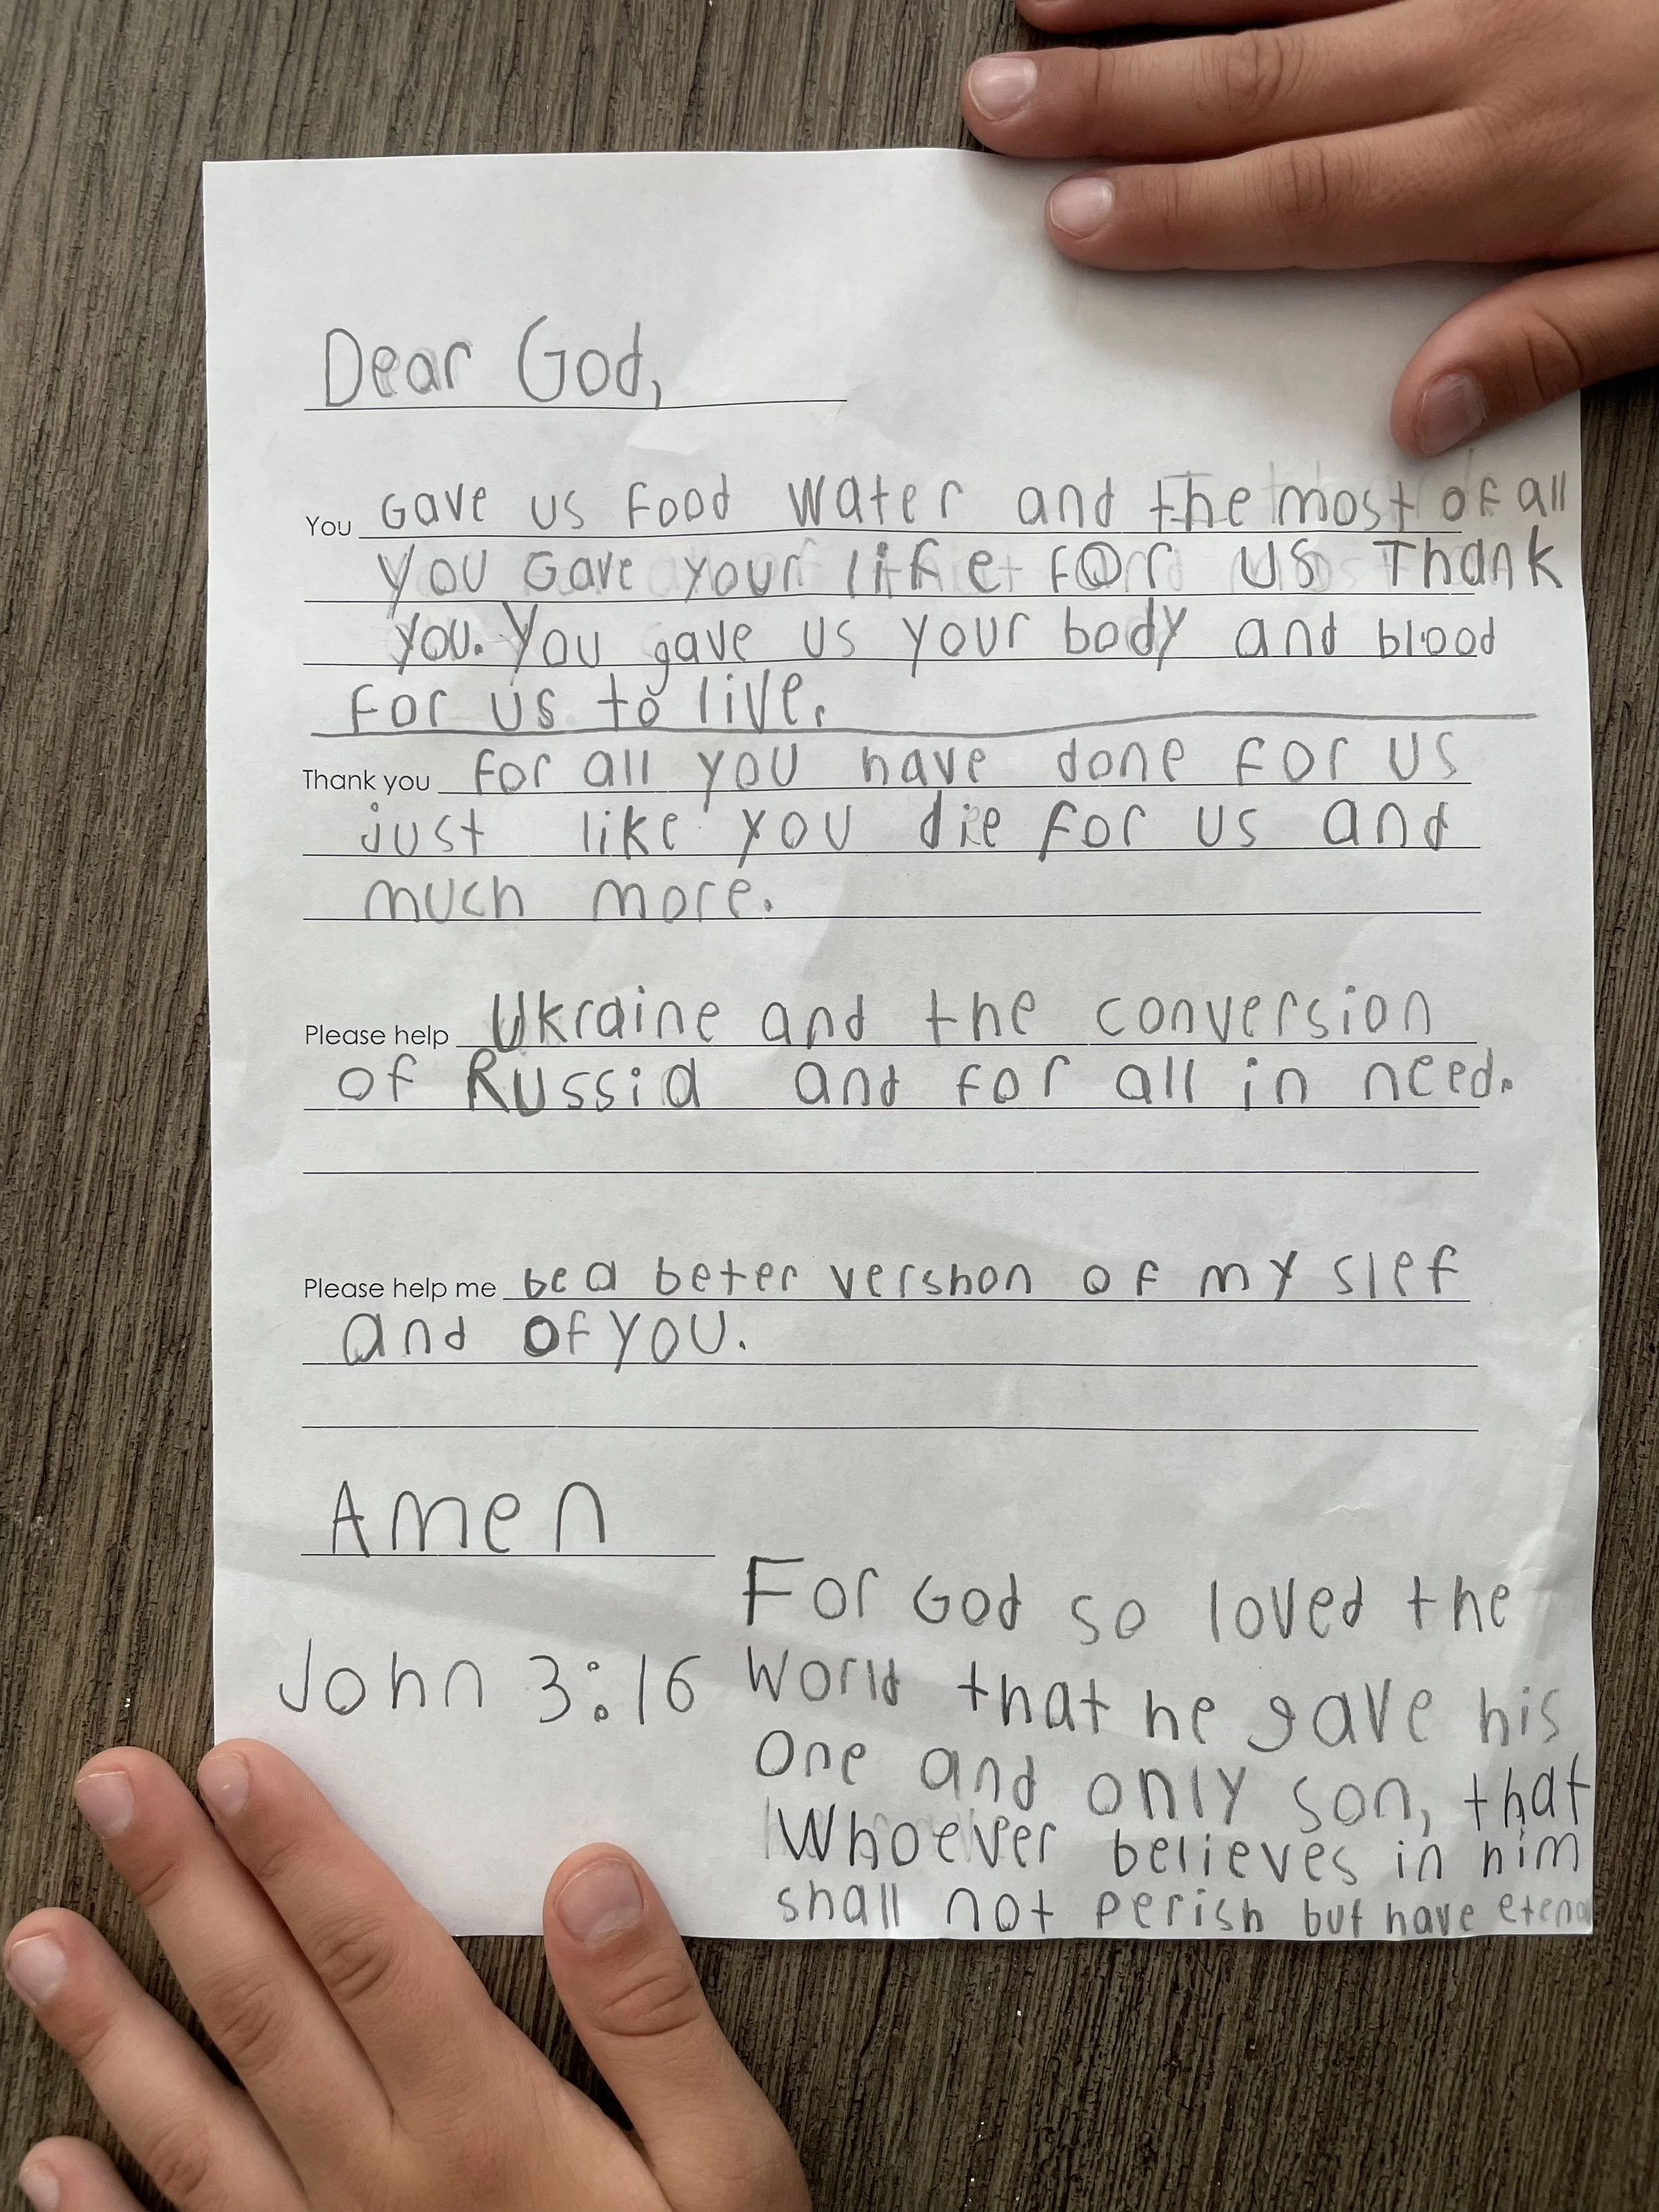 Dear God,
You Gave us Food Water and the most of all
you Gave your life FOR us Thank
you. You gave us your body and blood
For us to live.
Thank you for all you have done for us
just like you die for us and
much more.
Please help Ukraine and the conversion
of Russia and for all in need.
Please help me be a beter vershon of my slef
and of you.
Amen
John 3:16
For God so loved the
World that he gave his
One and only son, that
Whoever believes in him
shall not perish but have etena